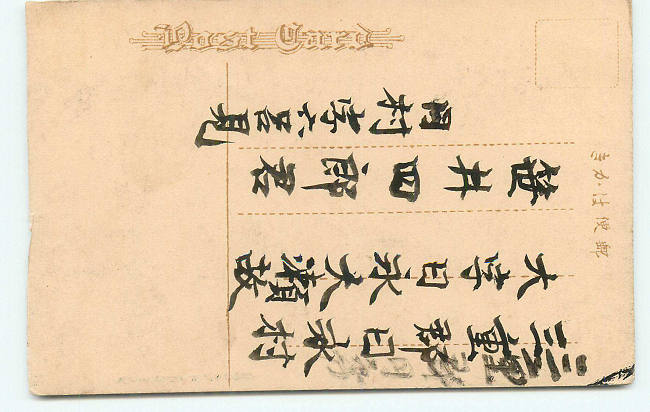 きかは便郵
三重郡日永村
大字日永大瀬故
笹井四郎君
同村字六呂見
Post Card